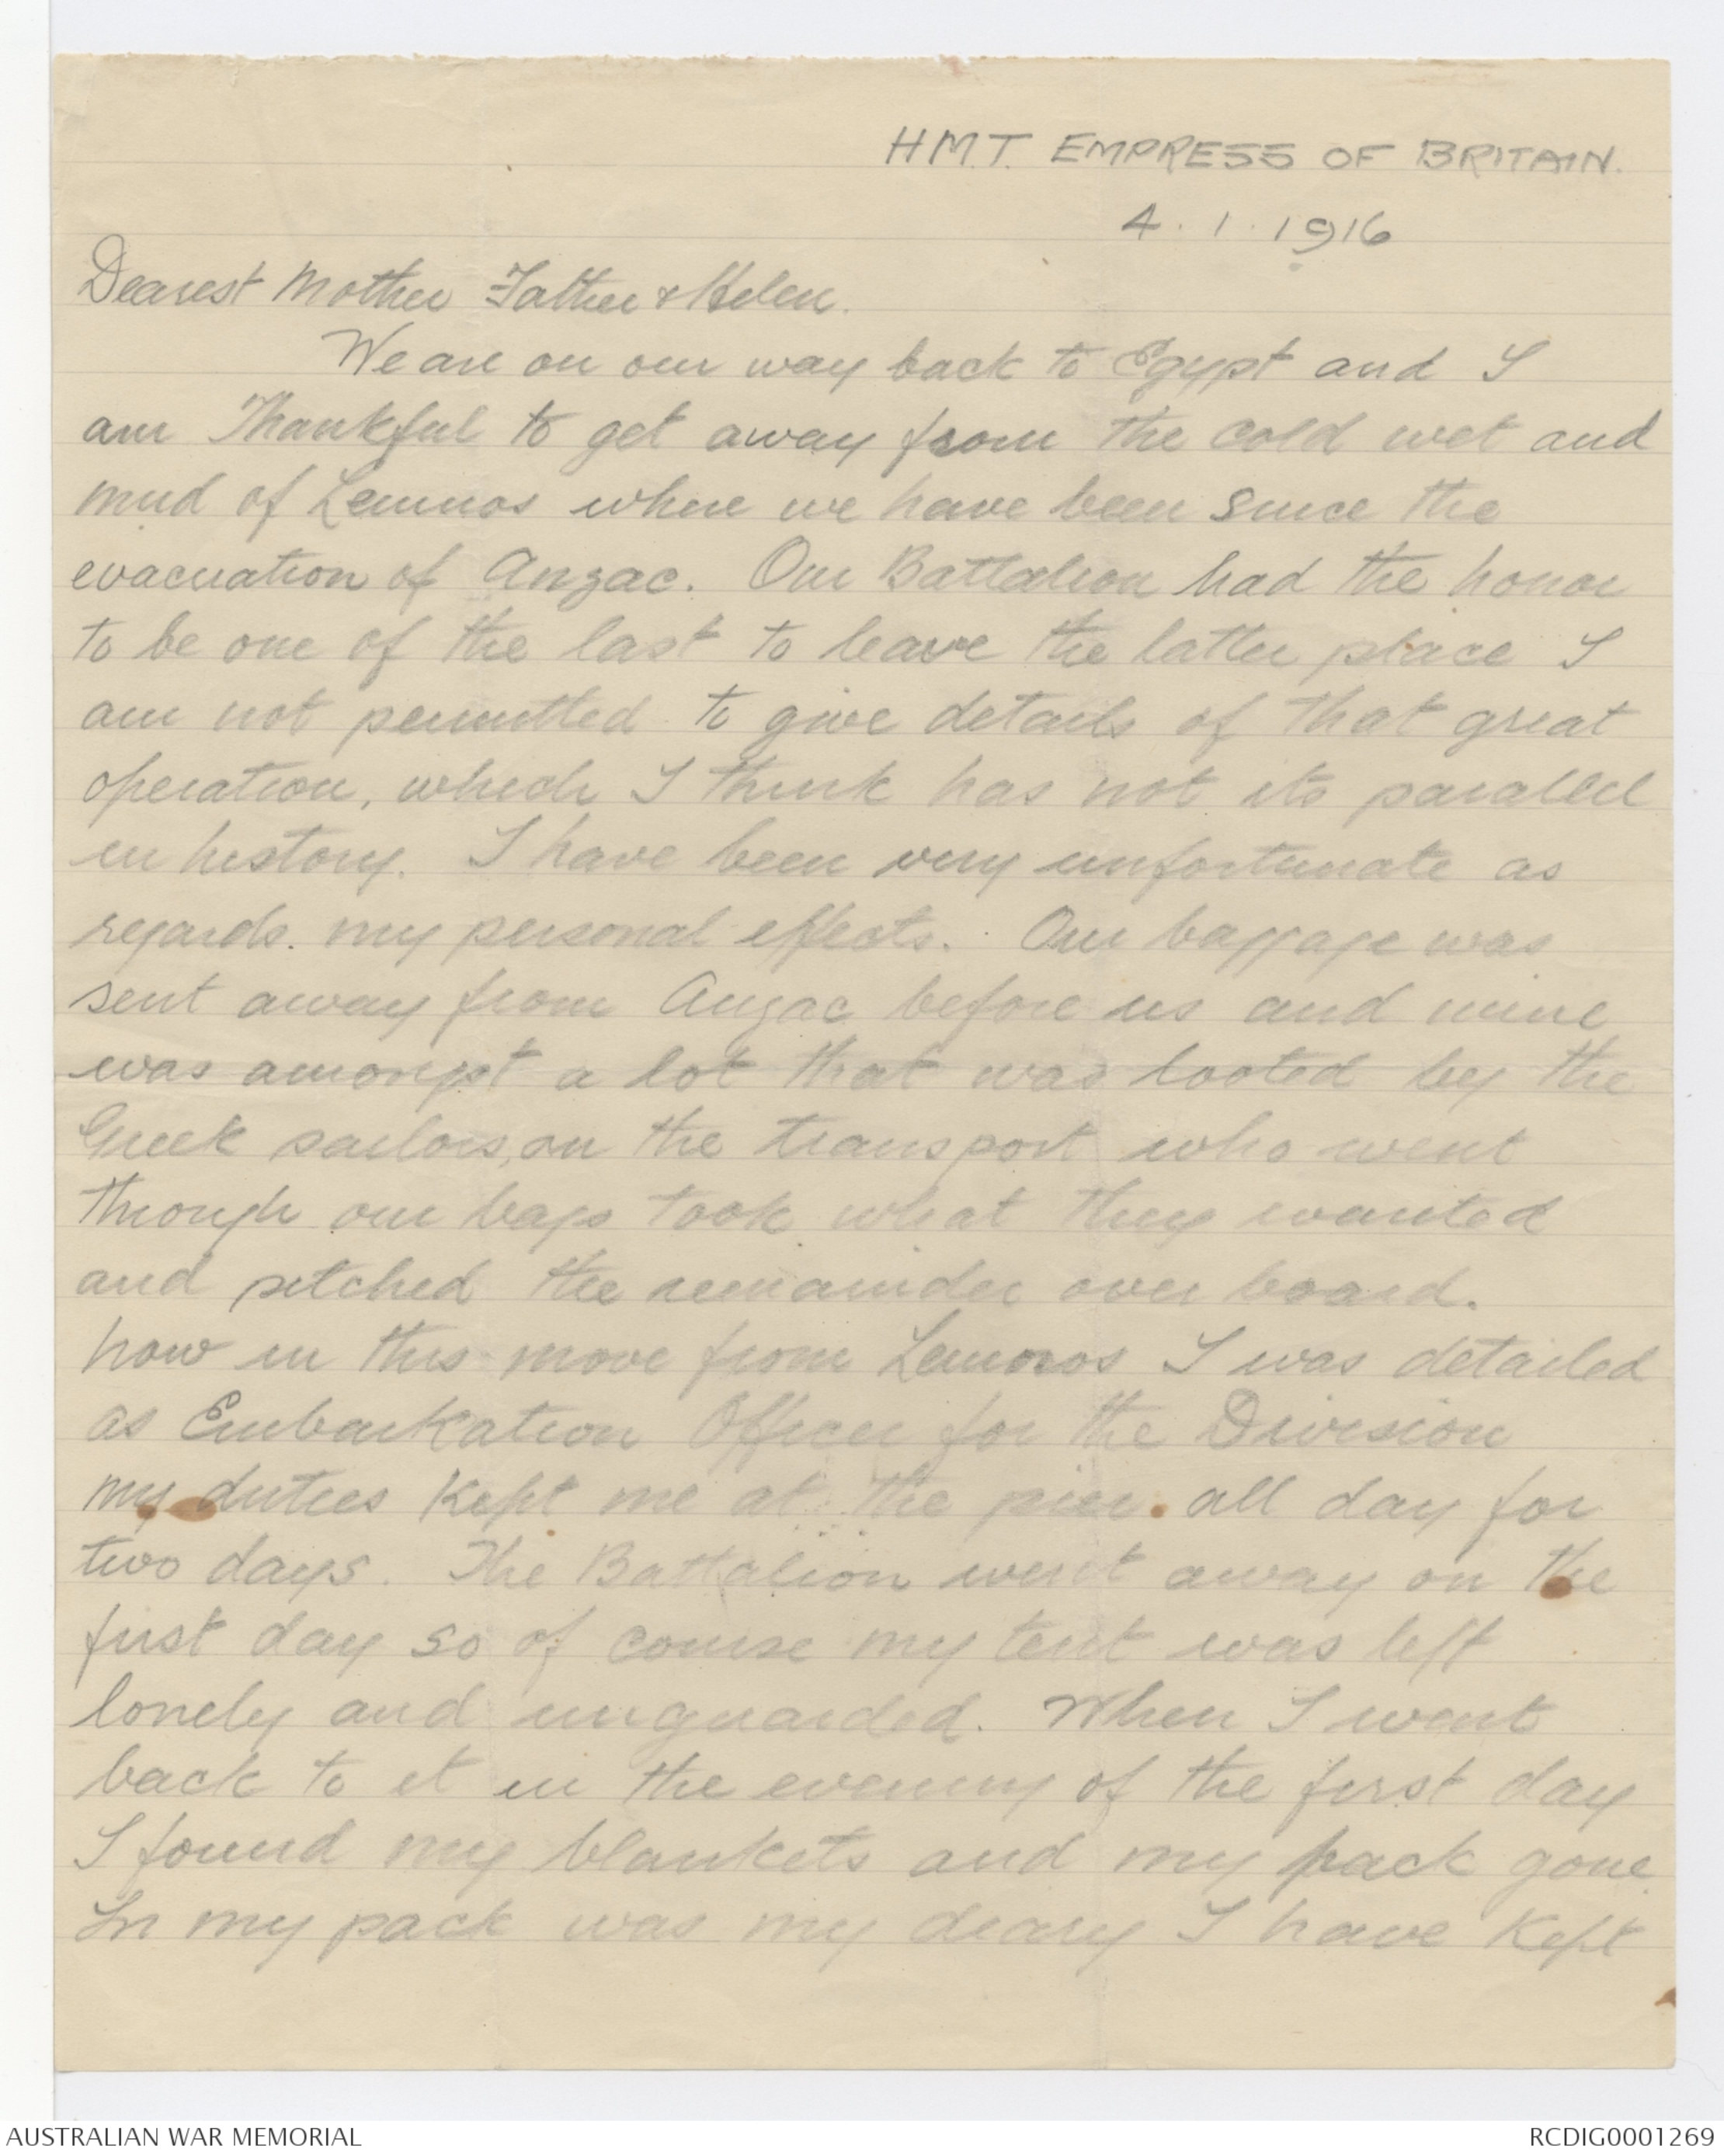 H.M.T. EMPRESS OF BRITAIN.
4.1.1916
Dearest Mother Father & Helen.
We are on our way back to Egypt and I
am Thankful to get away from the cold wet and
mud of Lemnos where we have been since the
evacuation of Anzac. Our Battalion had the honor
to be one of the last to leave the latter place I
am not permitted to give details of that great
operation, which I think has not its parallel
in history. I have been very unfortunate as
regards my personal effects. Our baggage was
sent away from Anzac before us and mine
was amongst a lot that was looted by the
Greek sailors, on the transport who went
through our bags took what they wanted
and pitched the remainder over board.
Now in this move from Lemnos I was detailed
as Embarkation Officer for the Division
my duties kept me at the pier all day for
two days. The Battalion went away on the
first day so of course my tent was left
lonely and unguarded. When I went
back to it in the evening of the first day
I found my blankets and my pack gone
In my pack was my diary I have kept
AUSTRALIAN WAR MEMORIAL
RCDIG0001269